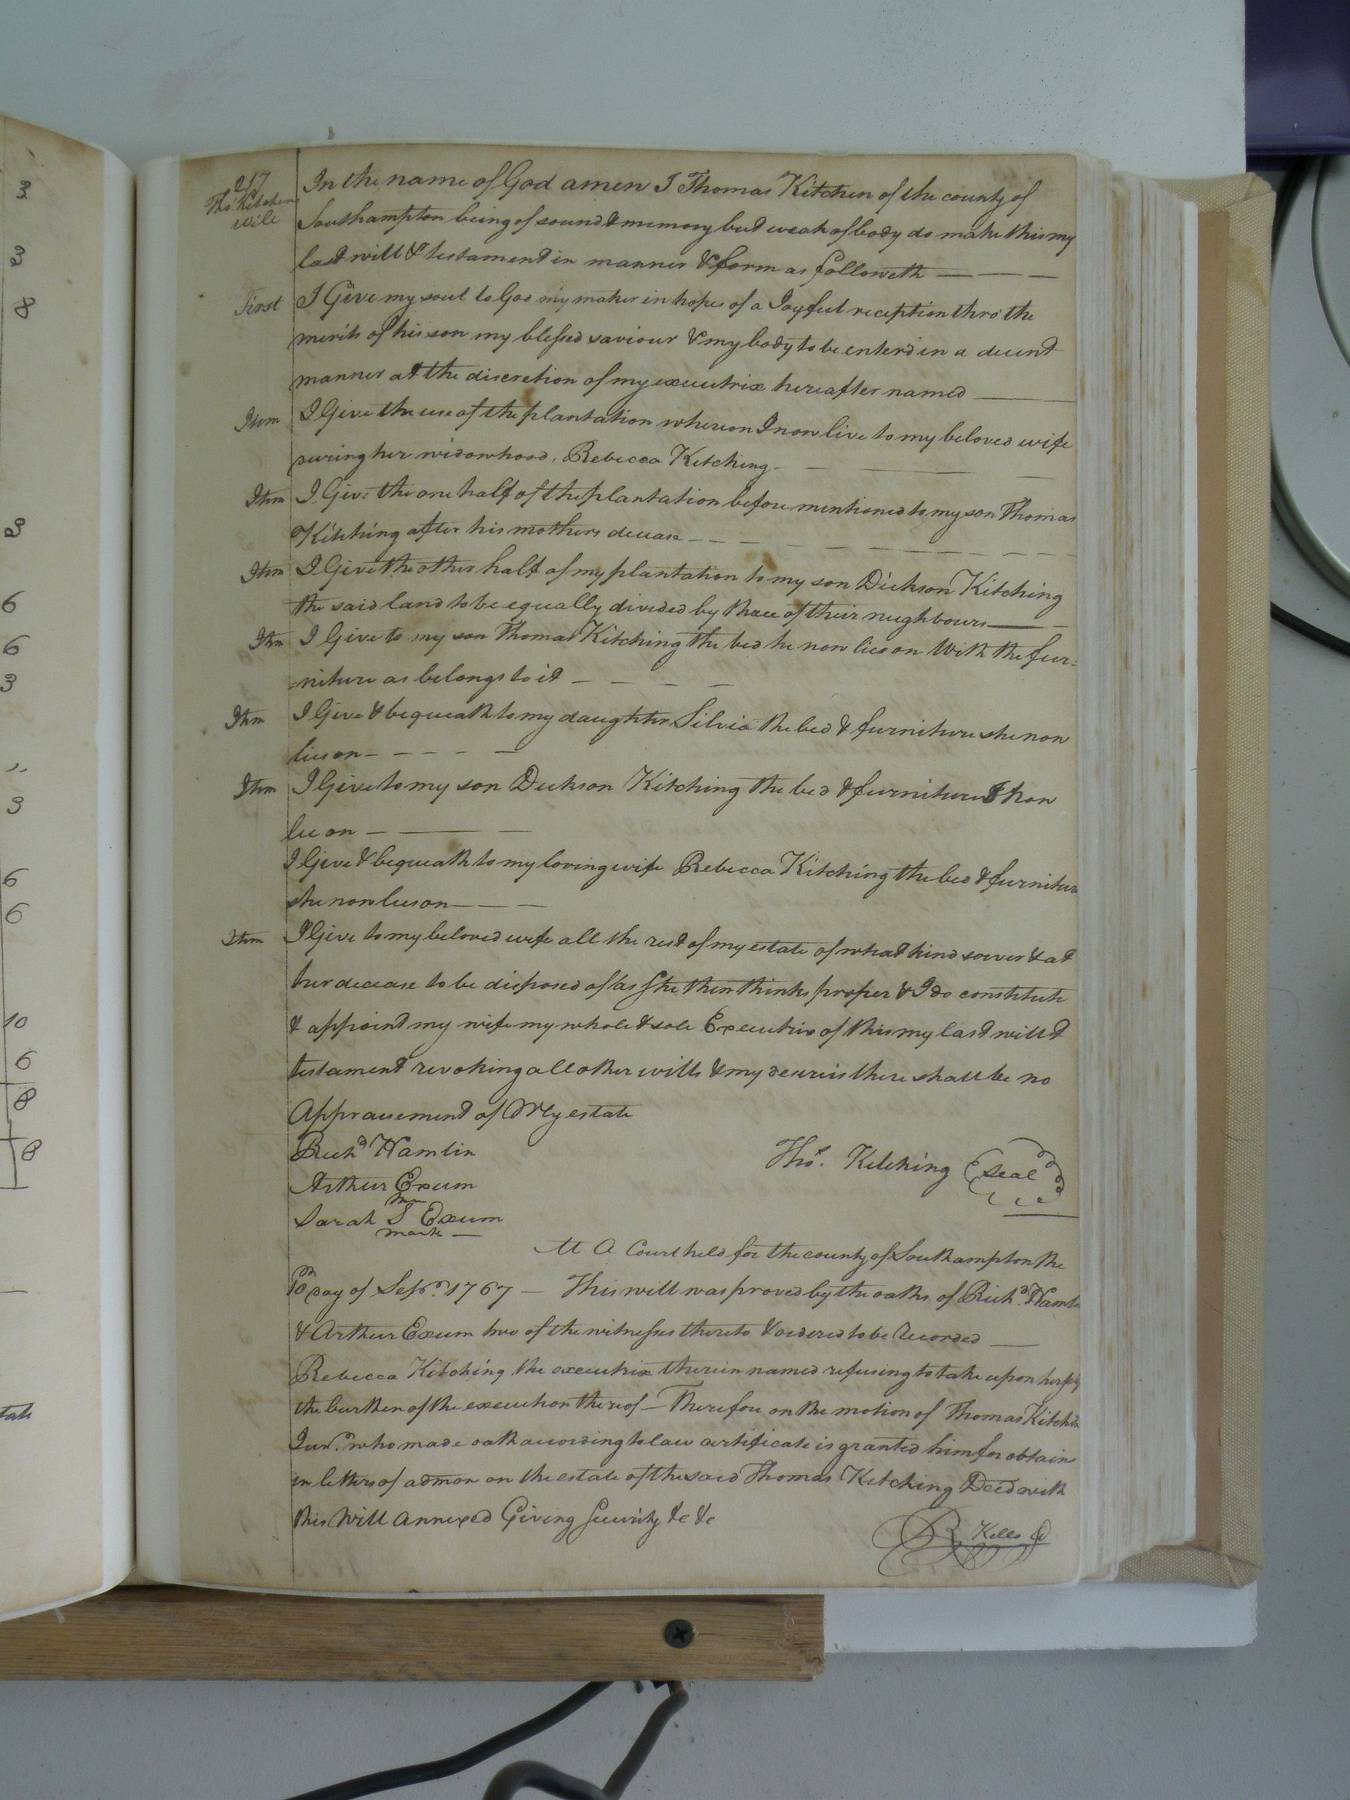 3
3
8
3
6
6
3
"
3
6
6
10
6
8
8
217
Thos. Kitchen
will
In the name of God amen I Thomas Kitchen of the county of
Southampton being of sound & memory but weak of body do make this my
last will & testament in manner & form as followeth
First I Give my soul to God my maker in hopes of a Joyful reception thro the
merits of his son my blessed saviour & my body to be enterd in a decent
manner at the discretion of my executrix hereafter named
Item I Give the use of the plantation whereon I now live to my beloved wife
during her widowhood. Rebecca Kitching
Item I Give the one half of the plantation before mentioned to my son Thomas
Kitching after his mothers decease
Item I Give the other half of my plantation to my son Dickson Kitching
the said land to be equally divided by three of their neighbours
Item I Give to my son Thomas Kitching the bed he now lies on With the fur=
niture as belongs to it
Item I Give & bequeath to my daughter Silvia the bed & furniture she now
lies on
Item I Give to my son Dickson Kitching the bed & furniture I now
lie on
I Give & bequeath to my loving wife Rebecca Kitching the bed & furniture
she now lies on
Item I Give to my beloved wife all the rest of my estate of what kind soever & at
her decease to be disposed of as she then thinks proper & I do constitute
& appoint my wife my whole & sole Executrix of this my last will &
testament revoking all other wills & my desire is there shall be no
Appraisement of My estate
Richd Hamlin
Thos. Kitching (seal)
Arthur Exum
Sarah S Exum
mark
At A Court held for the county of Southampton the
10th Day of Sepr. 1767 This will was proved by the oaths of Richd. Hamlin
& Arthur Exum two of the witnesses thereto & ordered to be Recorded
Rebecca Kitching the executrix therein named refusing to take upon herself
the burthen of the execution thereof Therefore on the motion of Thomas Kitchin
Junr. who made oath according to law certificate is granted him for obtain
in letters of admon on the estate of the said Thomas Kitching Decd with
this Will annexed Giving Security &c &c
R Kello